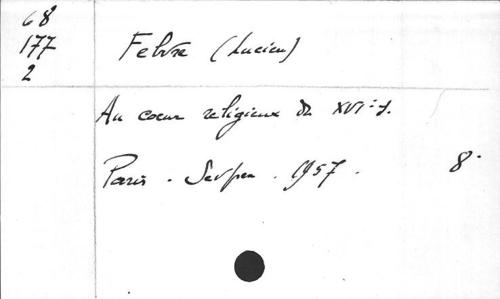 68
177
2
Febvre (Lucien)
Au coeur religieux du XVIe s.
Paris. Sevpen. 1957. 8°